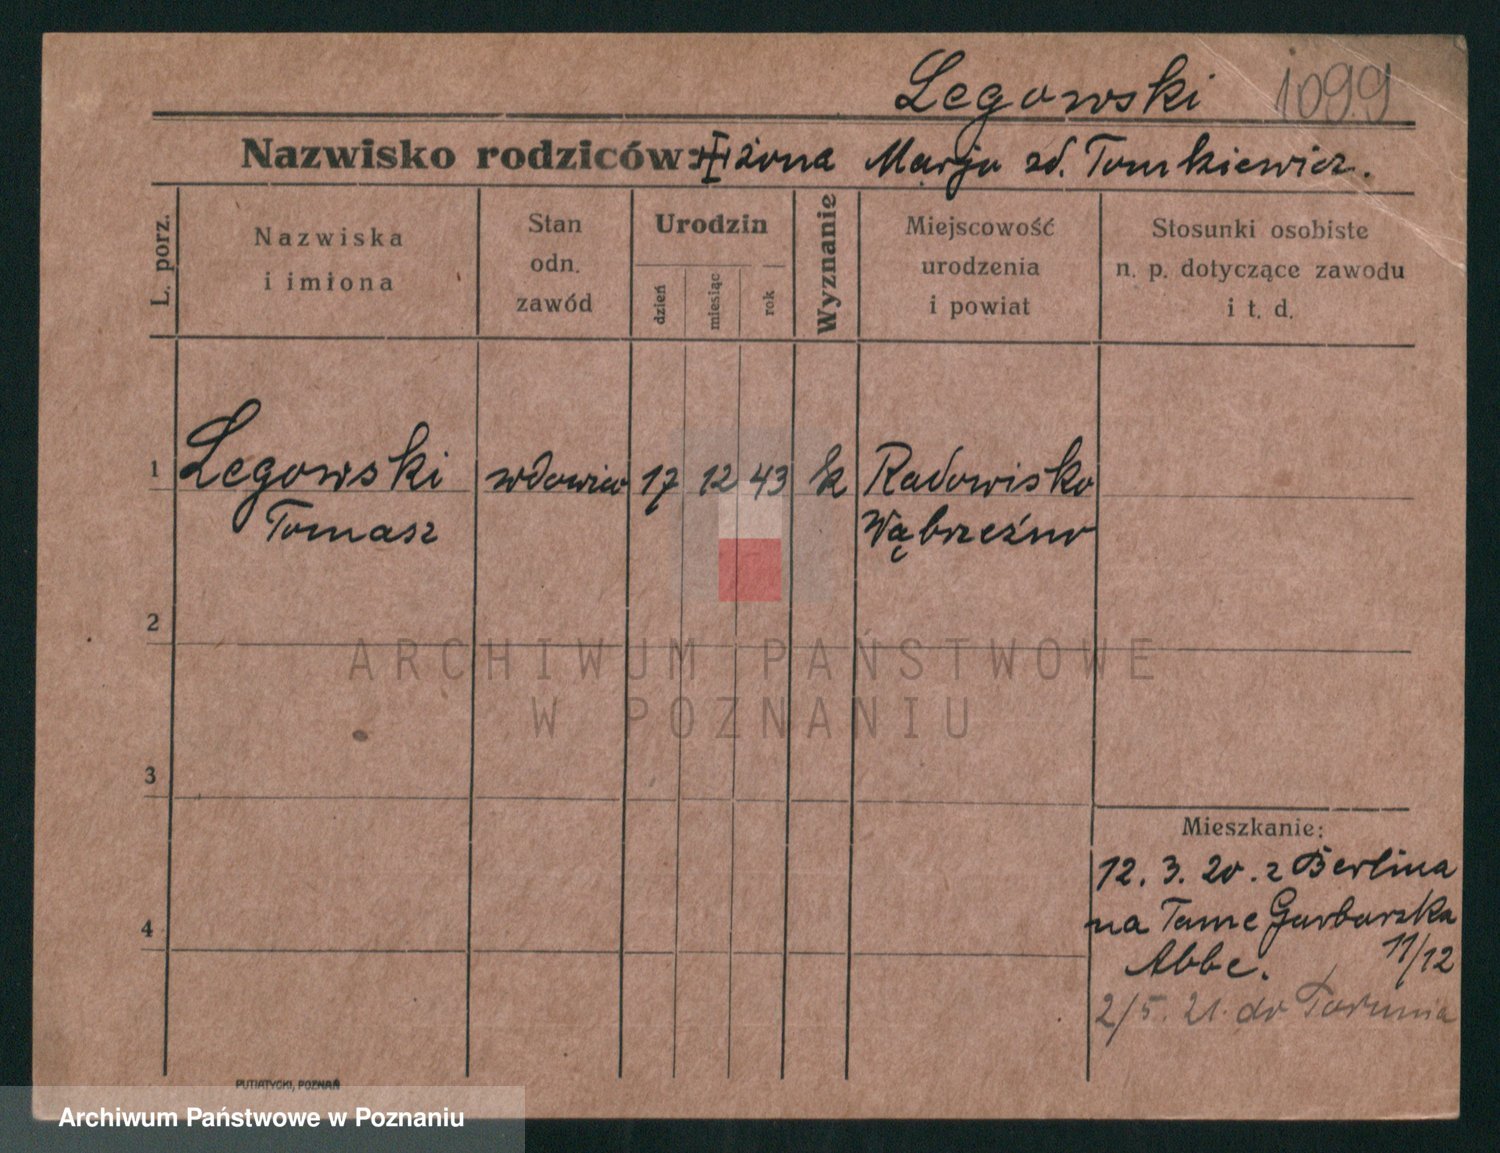 Legowski 1099
Nazwisko rodziców: I żona Marja zd. Tomkiewicz.
L. porz.
Nazwiska
i imiona
Stan
odn.
zawód
Urodzin
dzień
miesiąc
rok
Wyznanie
Miejscowość
urodzenia
i powiat
Stosunki osobiste
n. p. dotyczące zawodu
i t. d.
1 Legowski wdowiec 17 12 43 k Radowisko
Tomasz Wąbrzeźno
2
3
4
Mieszkanie:
12. 3. 20. z Berlina
na Tame Garbarska
Abbe. 11/12
2/5. 21. do Torunia
ARCHIWUM PAŃSTWOWE
W POZNANIU
PUTIATYCKI, POZNAŃ
Archiwum Państwowe w Poznaniu